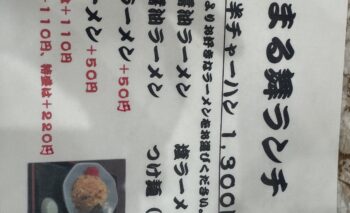 まる舞ランチ
半チャーハン 1,300円
よりお好きなラーメンをお選びください。
醤油ラーメン 塩ラーメ
醤油ラーメン つけ麺（
ラーメン+50円
ーメン+50円
+110円
+110円、特盛は+220円